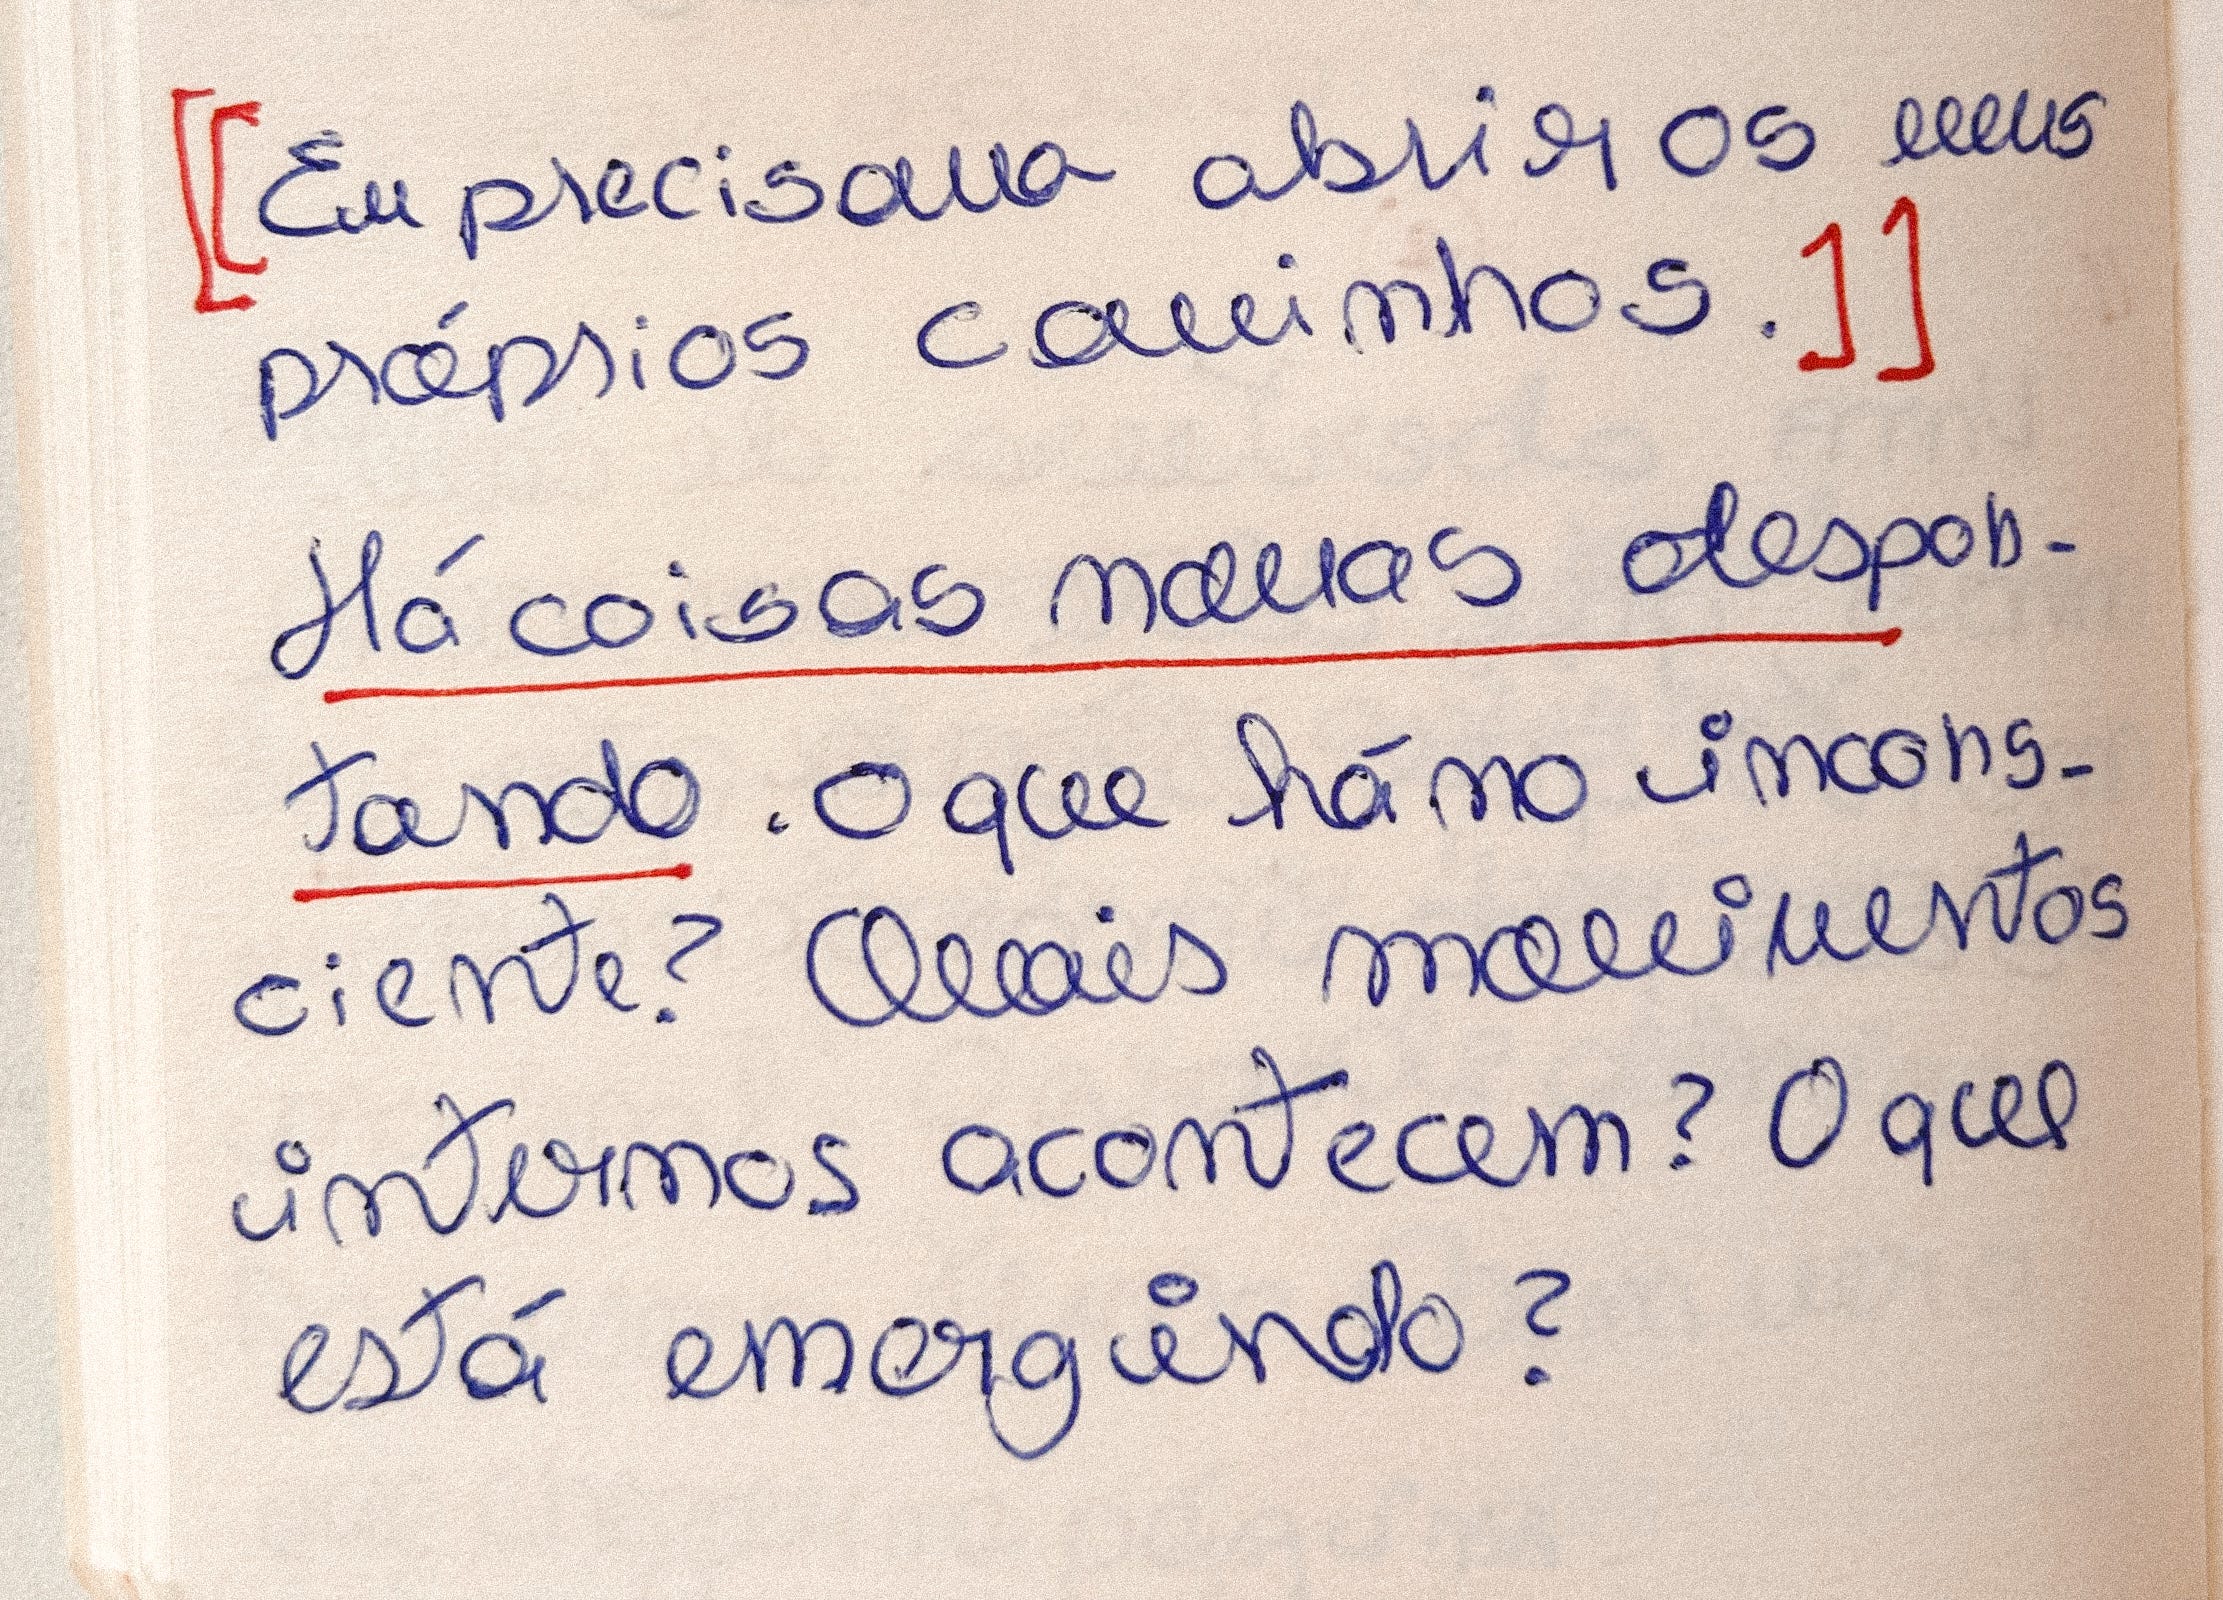 [[Eu precisava abrir os meus
próprios caminhos.]]
Há coisas novas despon-
tando. O que há no incons-
ciente? Quais movimentos
internos acontecem? O que
está emergindo?